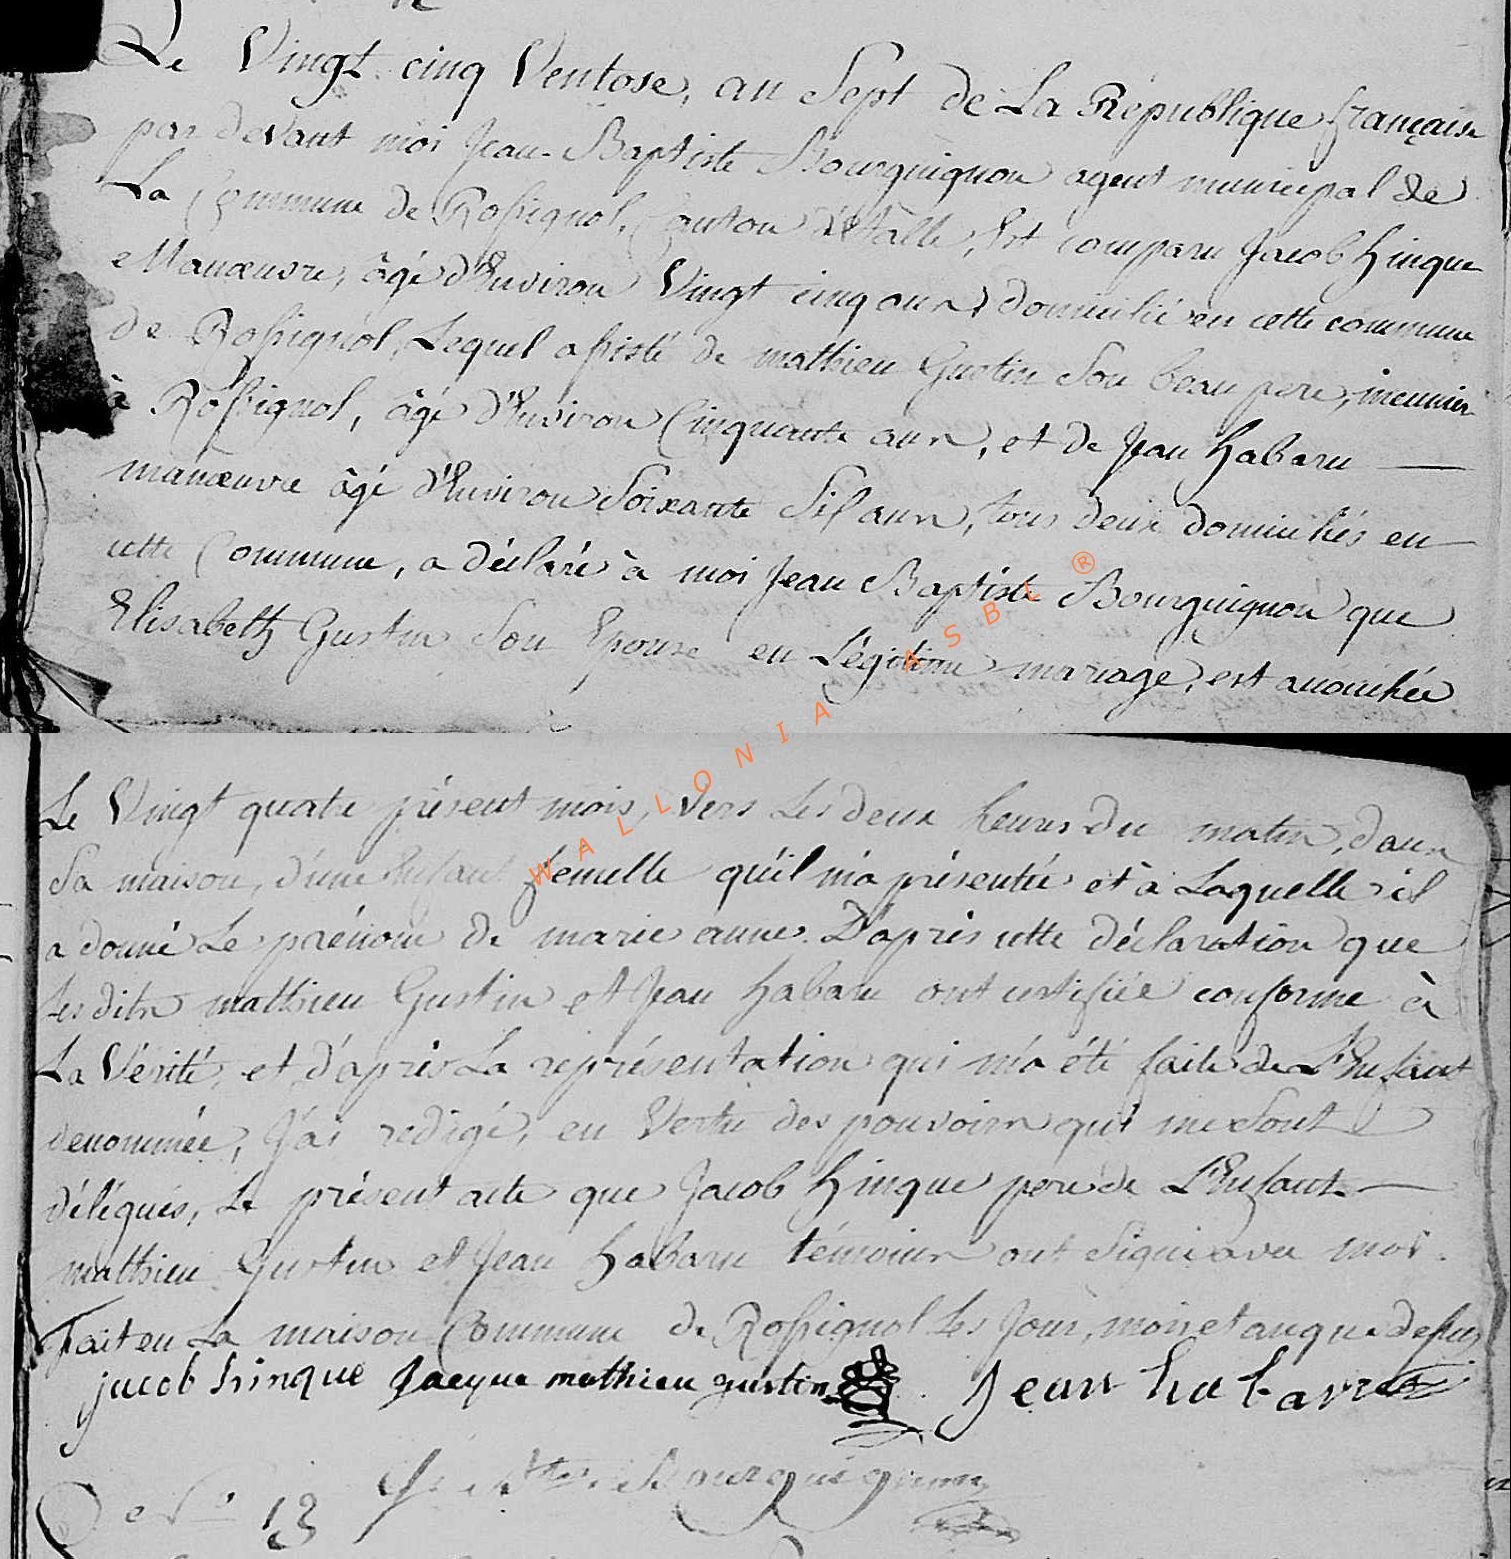 Le Vingt cinq Ventose, an Sept de La République française
par devant moi Jean-Baptiste Bourguignon agent municipal de
La Commune de Rossignol, Canton d'Etalle, Est comparu Jacob hinque
Manœuvre, âgé d'Environ Vingt cinq ans, domicilié en cette commune
de Rossignol, Lequel assisté de mathieu Gustin Son beau pere, meunier
à Rossignol, âgé d'Environ Cinquante ans, et de Jean habaru
manœuvre âgé d'Environ Soixante Six ans, tous deux domiciliés en
cette Commune, a déclaré à moi Jean Baptiste Bourguignon que
Elisabeth Gustin Son Epouse en Légitime mariage, est accouchée
Le Vingt quatre présent mois, Vers Les deux heures du matin, dans
Sa maison, d'une Enfant femelle qu'il m'a présentée et à Laquelle il
a donné Le prénom de marie anne. D'après cette déclaration que
Les dits mathieu Gustin et Jean habaru ont certifiée conforme à
La Vérité, et d'après La représentation qui m'a été faite de L'Enfant
denommée, J'ai redigé, en Vertu des pouvoirs qui me Sont
délégués, Le présent acte que Jacob hinque pere de L'Enfant
mathieu Gustin et Jean habaru témoins ont Signé avec moi.
Fait en La maison Commune de Rossignol Les Jour, mois et an que dessus
jacob hinque Jacque mathieu gustin Jean habaru
J. Btte Bourguignon
N° 13
WALLONIA ASBL ®